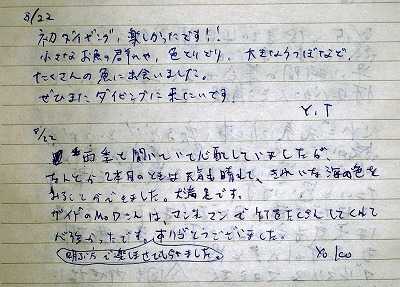 8/22
初ダイビング、楽しかったです!!
小さなお魚の群れや、色とりどり、大きなうつぼなど、
たくさんの魚に出会いました。
ぜひまたダイビングに来たいです。
Y.T
8/22
雨季と聞いていて心配していましたが、
なんとか2本目のときは天気も晴れて、きれいな海の色を
みることができました。大満足です。
ガイドのMoさんは、マンツーマンで をたくさんしてくれて
心強かったです。ありがとうございました。
明るい方で楽しませてもらいました。
Yoko